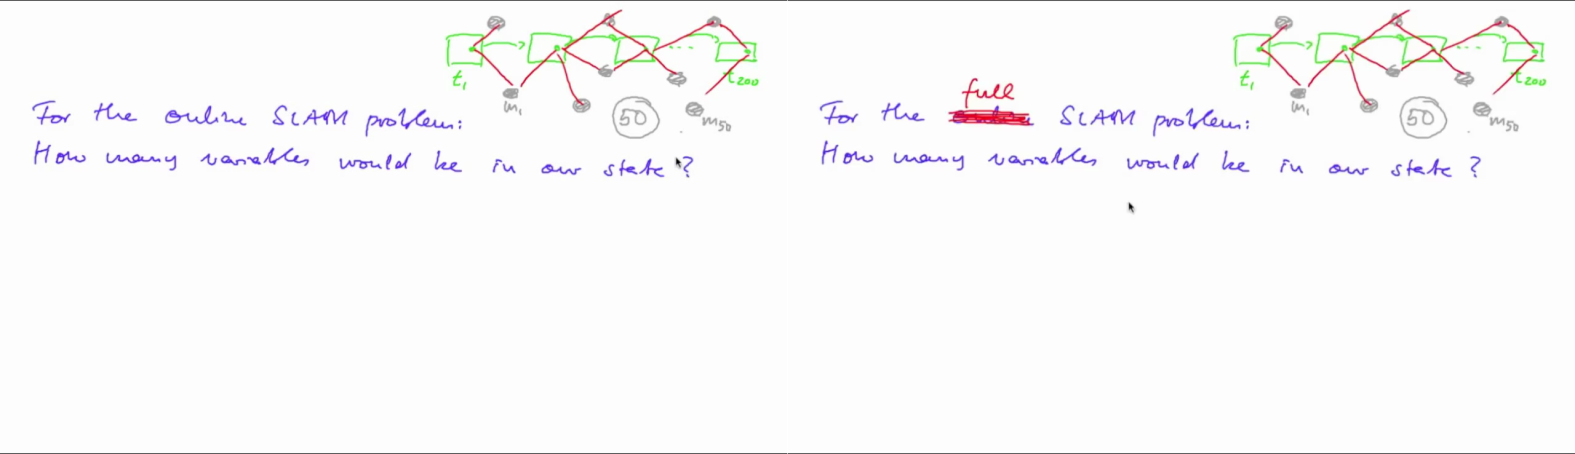 t₁
m₁
50
m₅₀
t₂₀₀
For the online SLAM problem:
How many variables would be in our state?
t₁
m₁
50
m₅₀
t₂₀₀
full
For the SLAM problem:
How many variables would be in our state?